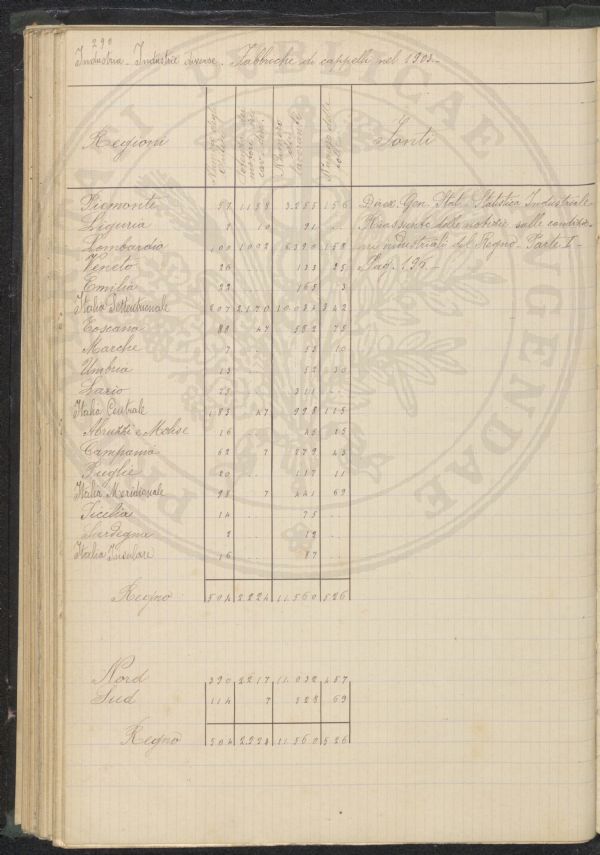 290
Industria - Industrie diverse. Fabbriche di cappelli nel 1903 -
Regioni Numero dei lavoranti Fonti
Piemonte 57 1158 3255 156 Direz. Gen. Stat. Statistica Industriale
Liguria 2 10 21 .. Riassunto delle notizie sulle condizio-
Lombardia 100 1002 6390 158 ni industriali del Regno. Parte I -
Veneto 26 .. 133 25 Pag. 196 -
Emilia 22 .. 165 3
Italia Settentrionale 207 2170 10.034 342
Toscana 88 47 582 75
Marche 7 .. 53 10
Umbria 13 .. 52 30
Lazio 75 .. 311 ..
Italia Centrale 183 47 998 115
Abruzzi e Molise 16 .. 45 15
Campania 62 7 279 43
Puglie 20 .. 117 11
Italia Meridionale 98 7 441 69
Sicilia 14 .. 75
Sardegna 2 .. 12 ..
Italia Insulare 16 .. 87
Regno 504 2224 11.560 526
Nord 390 2217 11.032 457
Sud 114 7 528 69
Regno 504 2224 11.560 526